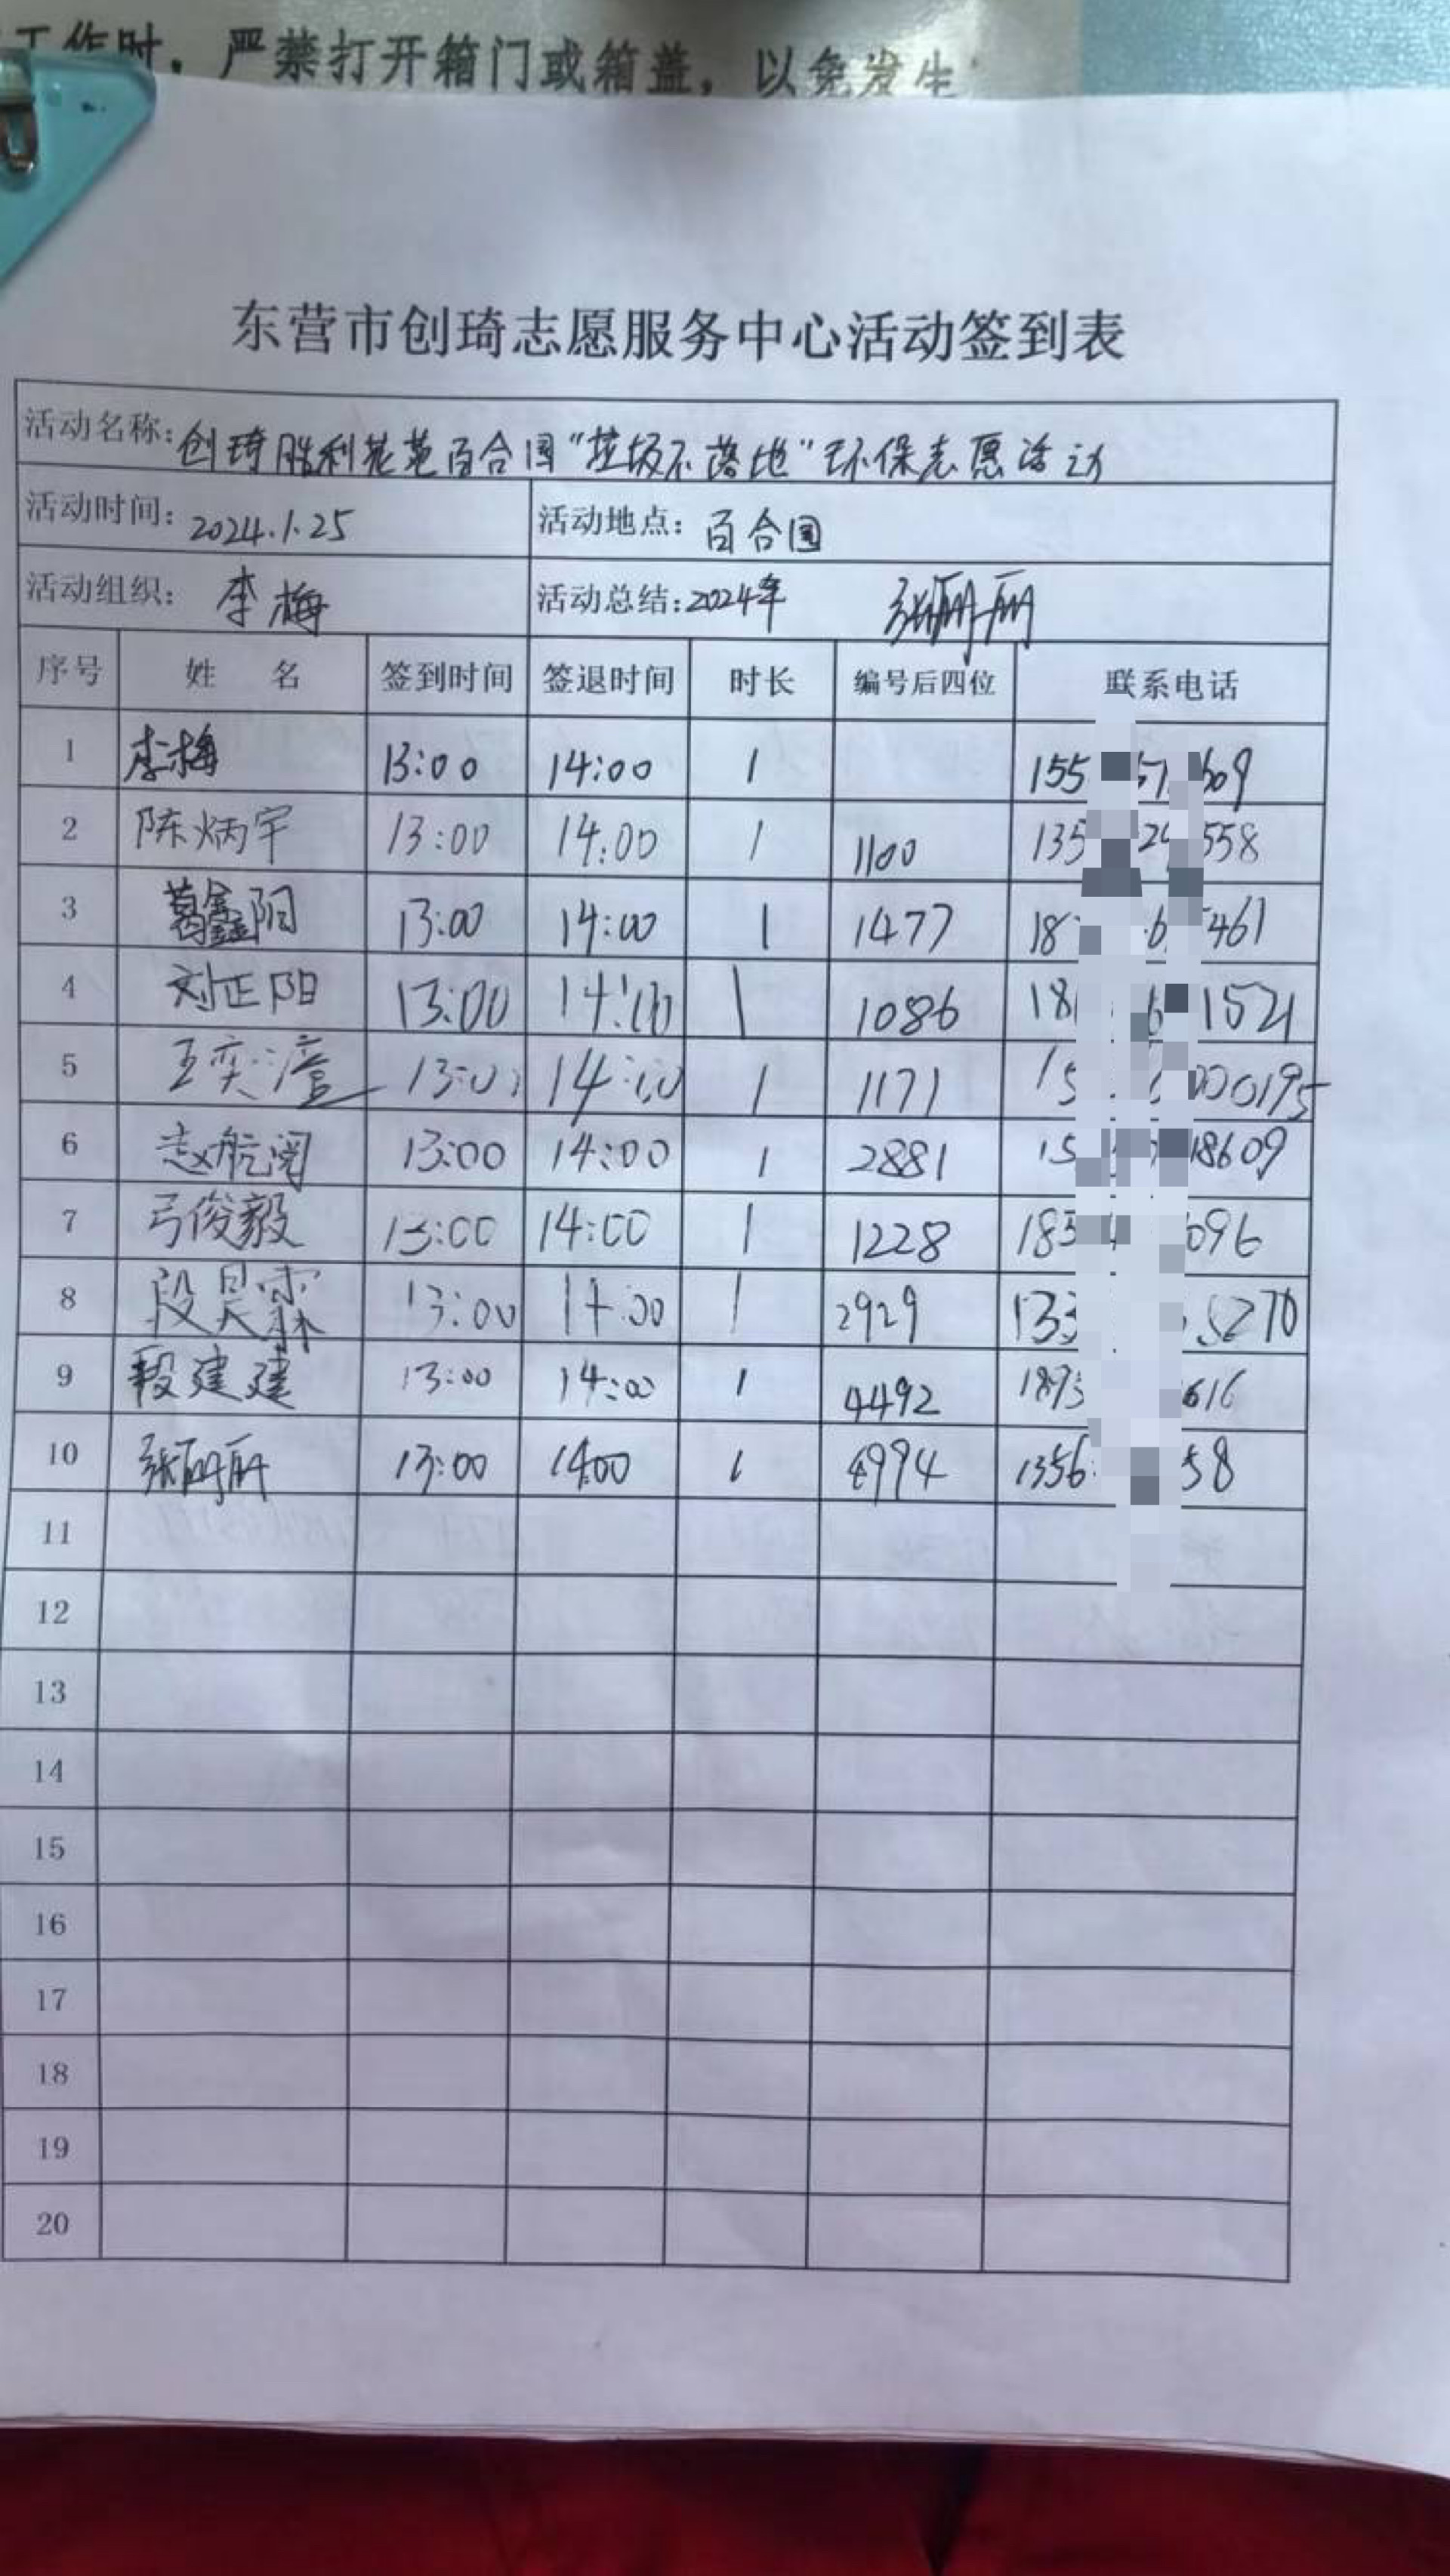 工作时，严禁打开箱门或箱盖，以免发生
东营市创琦志愿服务中心活动签到表
活动名称：创琦胜利花苑百合园“垃圾不落地”环保志愿活动
活动时间：2024.1.25 活动地点：百合园
活动组织：李梅 活动总结：2024年 张丽丽
序号 姓 名 签到时间 签退时间 时长 编号后四位 联系电话
1 李梅 13:00 14:00 1 155 609
2 陈炳宇 13:00 14:00 1 1100 135 558
3 葛鑫阳 13:00 14:00 1 1477 18 461
4 刘正阳 13:00 14:00 1 1086 18 1521
5 王奕 13:00 14:00 1 1171 15 000195
6 赵航 13:00 14:00 1 2881 15 18609
7 弓俊毅 13:00 14:00 1 1228 183 096
8 段昊霖 13:00 14:00 1 2929 133 5270
9 段建建 13:00 14:00 1 4492 1893 616
10 张丽丽 13:00 14:00 1 4994 1356 58
11
12
13
14
15
16
17
18
19
20